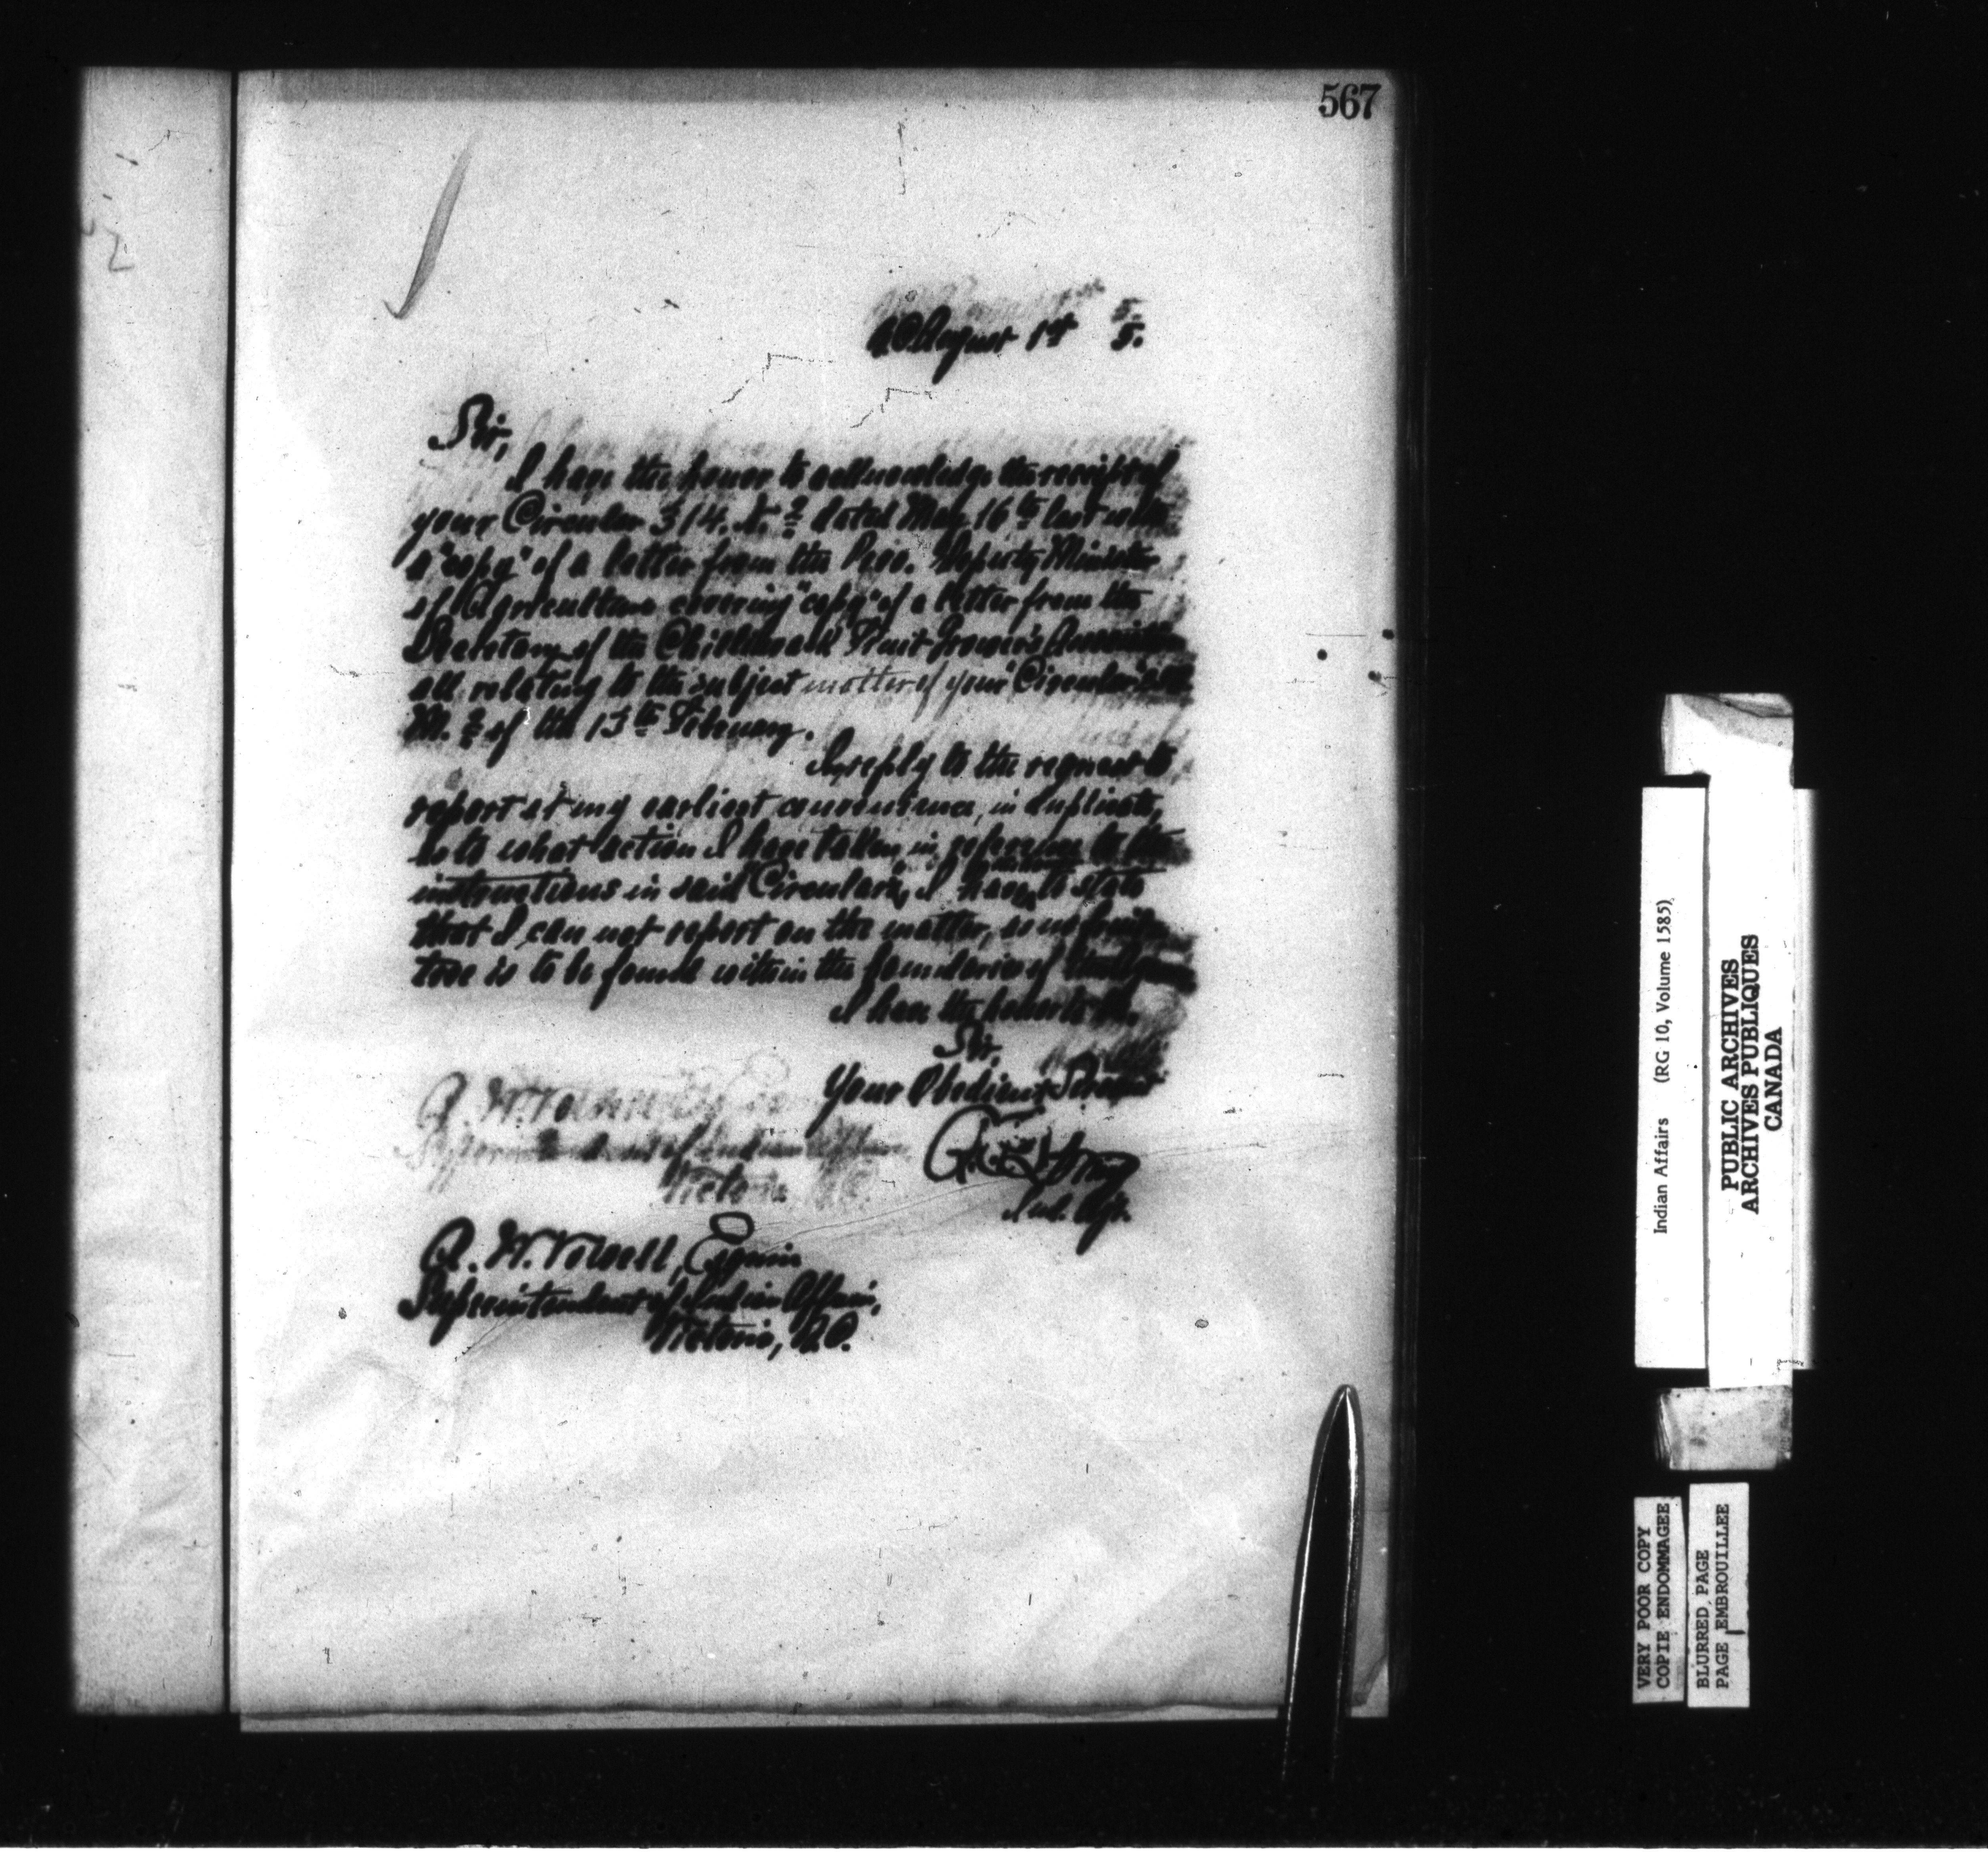 567
August 1st 5.
Sir,
I have the honor to acknowledge the receipt of
your Circular 314. dated May 16th last with
a "copy" of a letter from the Prov. Deputy Minister
of Agriculture covering "copy" of a letter from the
Secretary of the Chilliwack Fruit Grower's Association
all relating to the subject matter of your Circular
of the 13th February.
In reply to the request to
report at my earliest convenience, in duplicate,
as to what action I have taken in reference to the
instructions in said Circulars, I have to state
that I can not report on the matter, as no fruit
tree is to be found within the boundaries of
I have the honor to be.
Sir,
Your Obedient Servant
Ind. Agt.
A. W. Vowell, Esquire
Superintendent of Indian Affairs,
Victoria, B.C.
Indian Affairs (RG 10, Volume 1585)
PUBLIC ARCHIVES
ARCHIVES PUBLIQUES
CANADA
VERY POOR COPY
COPIE ENDOMMAGEE
BLURRED PAGE
PAGE EMBROUILLEE